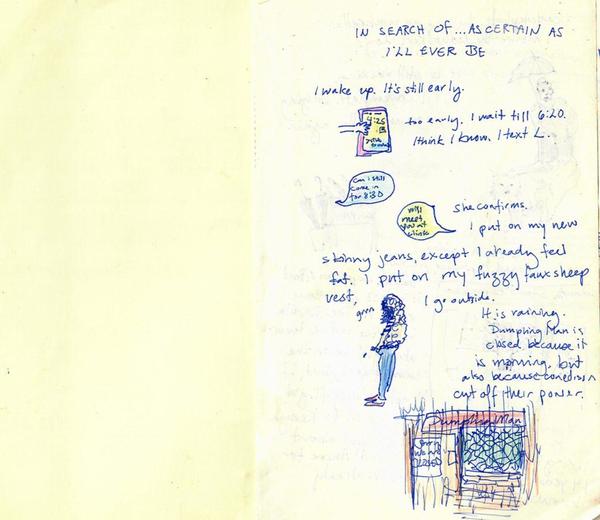 IN SEARCH OF... AS CERTAIN AS
I'LL EVER BE
I wake up. It's still early.
4:25
too early. I wait till 6:20.
I think I know. I text L.
can i still
come in
for 830
will
meet
you at
clinic
She confirms.
I put on my new
skinny jeans, except I already feel
fat. I put on my fuzzy faux sheep
vest,
I go outside.
It is raining.
Dumpling Man is
closed because it
is morning, but
also because conedison
cut off their power.
Dumpling Man
Sorry
we are
CLOSED